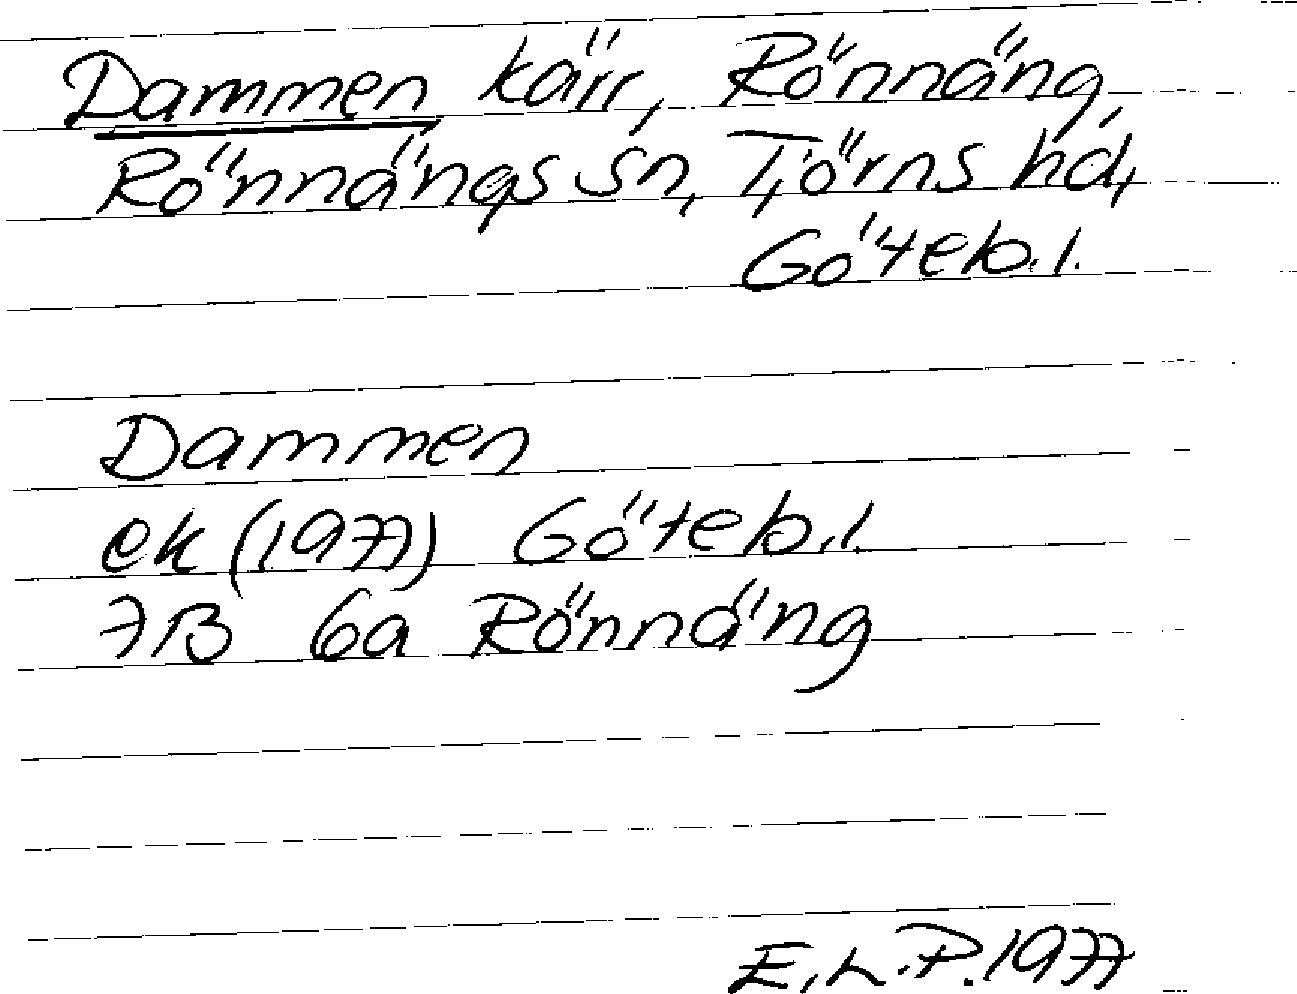 Dammen kärr, Rönnäng,
Rönnängs sn, Tjörns hd,
Göteb.l.
Dammen
ek (1977) Göteb.l.
7B 6a Rönnäng
E.L.P. 1977